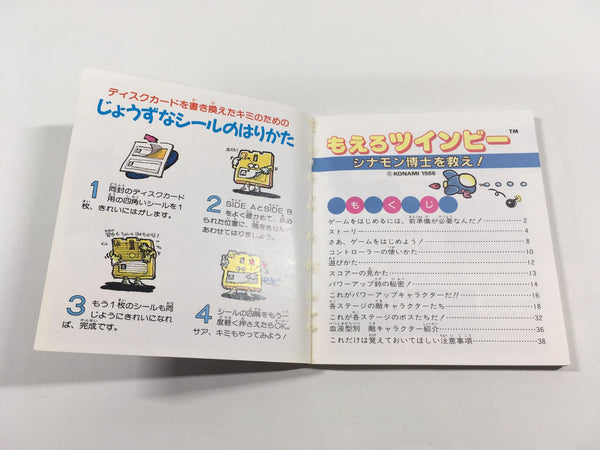 ディスクカードを書き換えたキミのための
じょうずなシールのはりかた
1 同封のディスクカード
用の四角いシールを1
枚、きれいにはがします。
2 SIDE AとSIDE B
をよく確かめて、
られた位置に、隅をきちんと
あわせてはりましょう。
3 もう1枚のシールも同
じようにきれいになれ
ば、完成です。
4 シールの四隅をもう一
度軽く押さえたらOK。
サァ、キミもやってみよう!
もえろツインビー™
シナモン博士を救え!
©KONAMI 1986
もくじ
ゲームをはじめるには、前準備が必要なんだ!……2
ストーリー……4
さあ、ゲームをはじめよう!……8
コントローラーの使いかた……10
遊びかた……12
スコアーの見かた……13
パワーアップ鈴の秘密!……14
これがパワーアップキャラクターだ!!……16
各ステージの敵キャラクターたち……18
これが各ステージのボスたちだ!……32
血液型別 敵キャラクター紹介……36
これだけは覚えておいてほしい注意事項……38